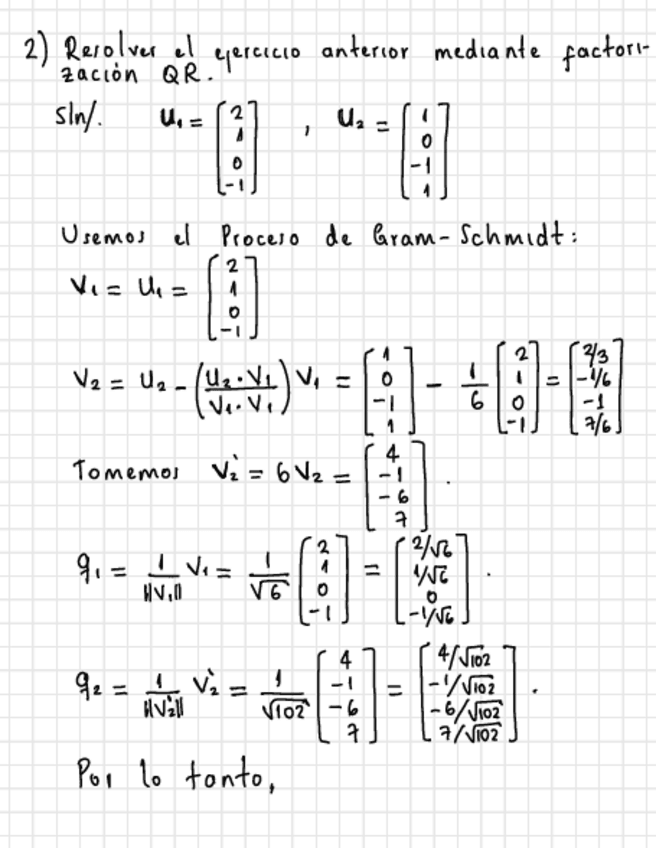 2) Resolver el ejercicio anterior mediante factori-
zación QR.
sln/. u₁ = [2 1 0 -1] , u₂ = [1 0 -1 1]
Usemos el Proceso de Gram-Schmidt:
V₁ = u₁ = [2 1 0 -1]
V₂ = u₂ - (u₂·V₁ / V₁·V₁) V₁ = [1 0 -1 1] - 1/6 [2 1 0 -1] = [2/3 -1/6 -1 7/6]
Tomemos V₂' = 6V₂ = [4 -1 -6 7].
q₁ = 1/‖V₁‖ V₁ = 1/√6 [2 1 0 -1] = [2/√6 1/√6 0 -1/√6].
q₂ = 1/‖V₂'‖ V₂' = 1/√102 [4 -1 -6 7] = [4/√102 -1/√102 -6/√102 7/√102].
Por lo tanto,